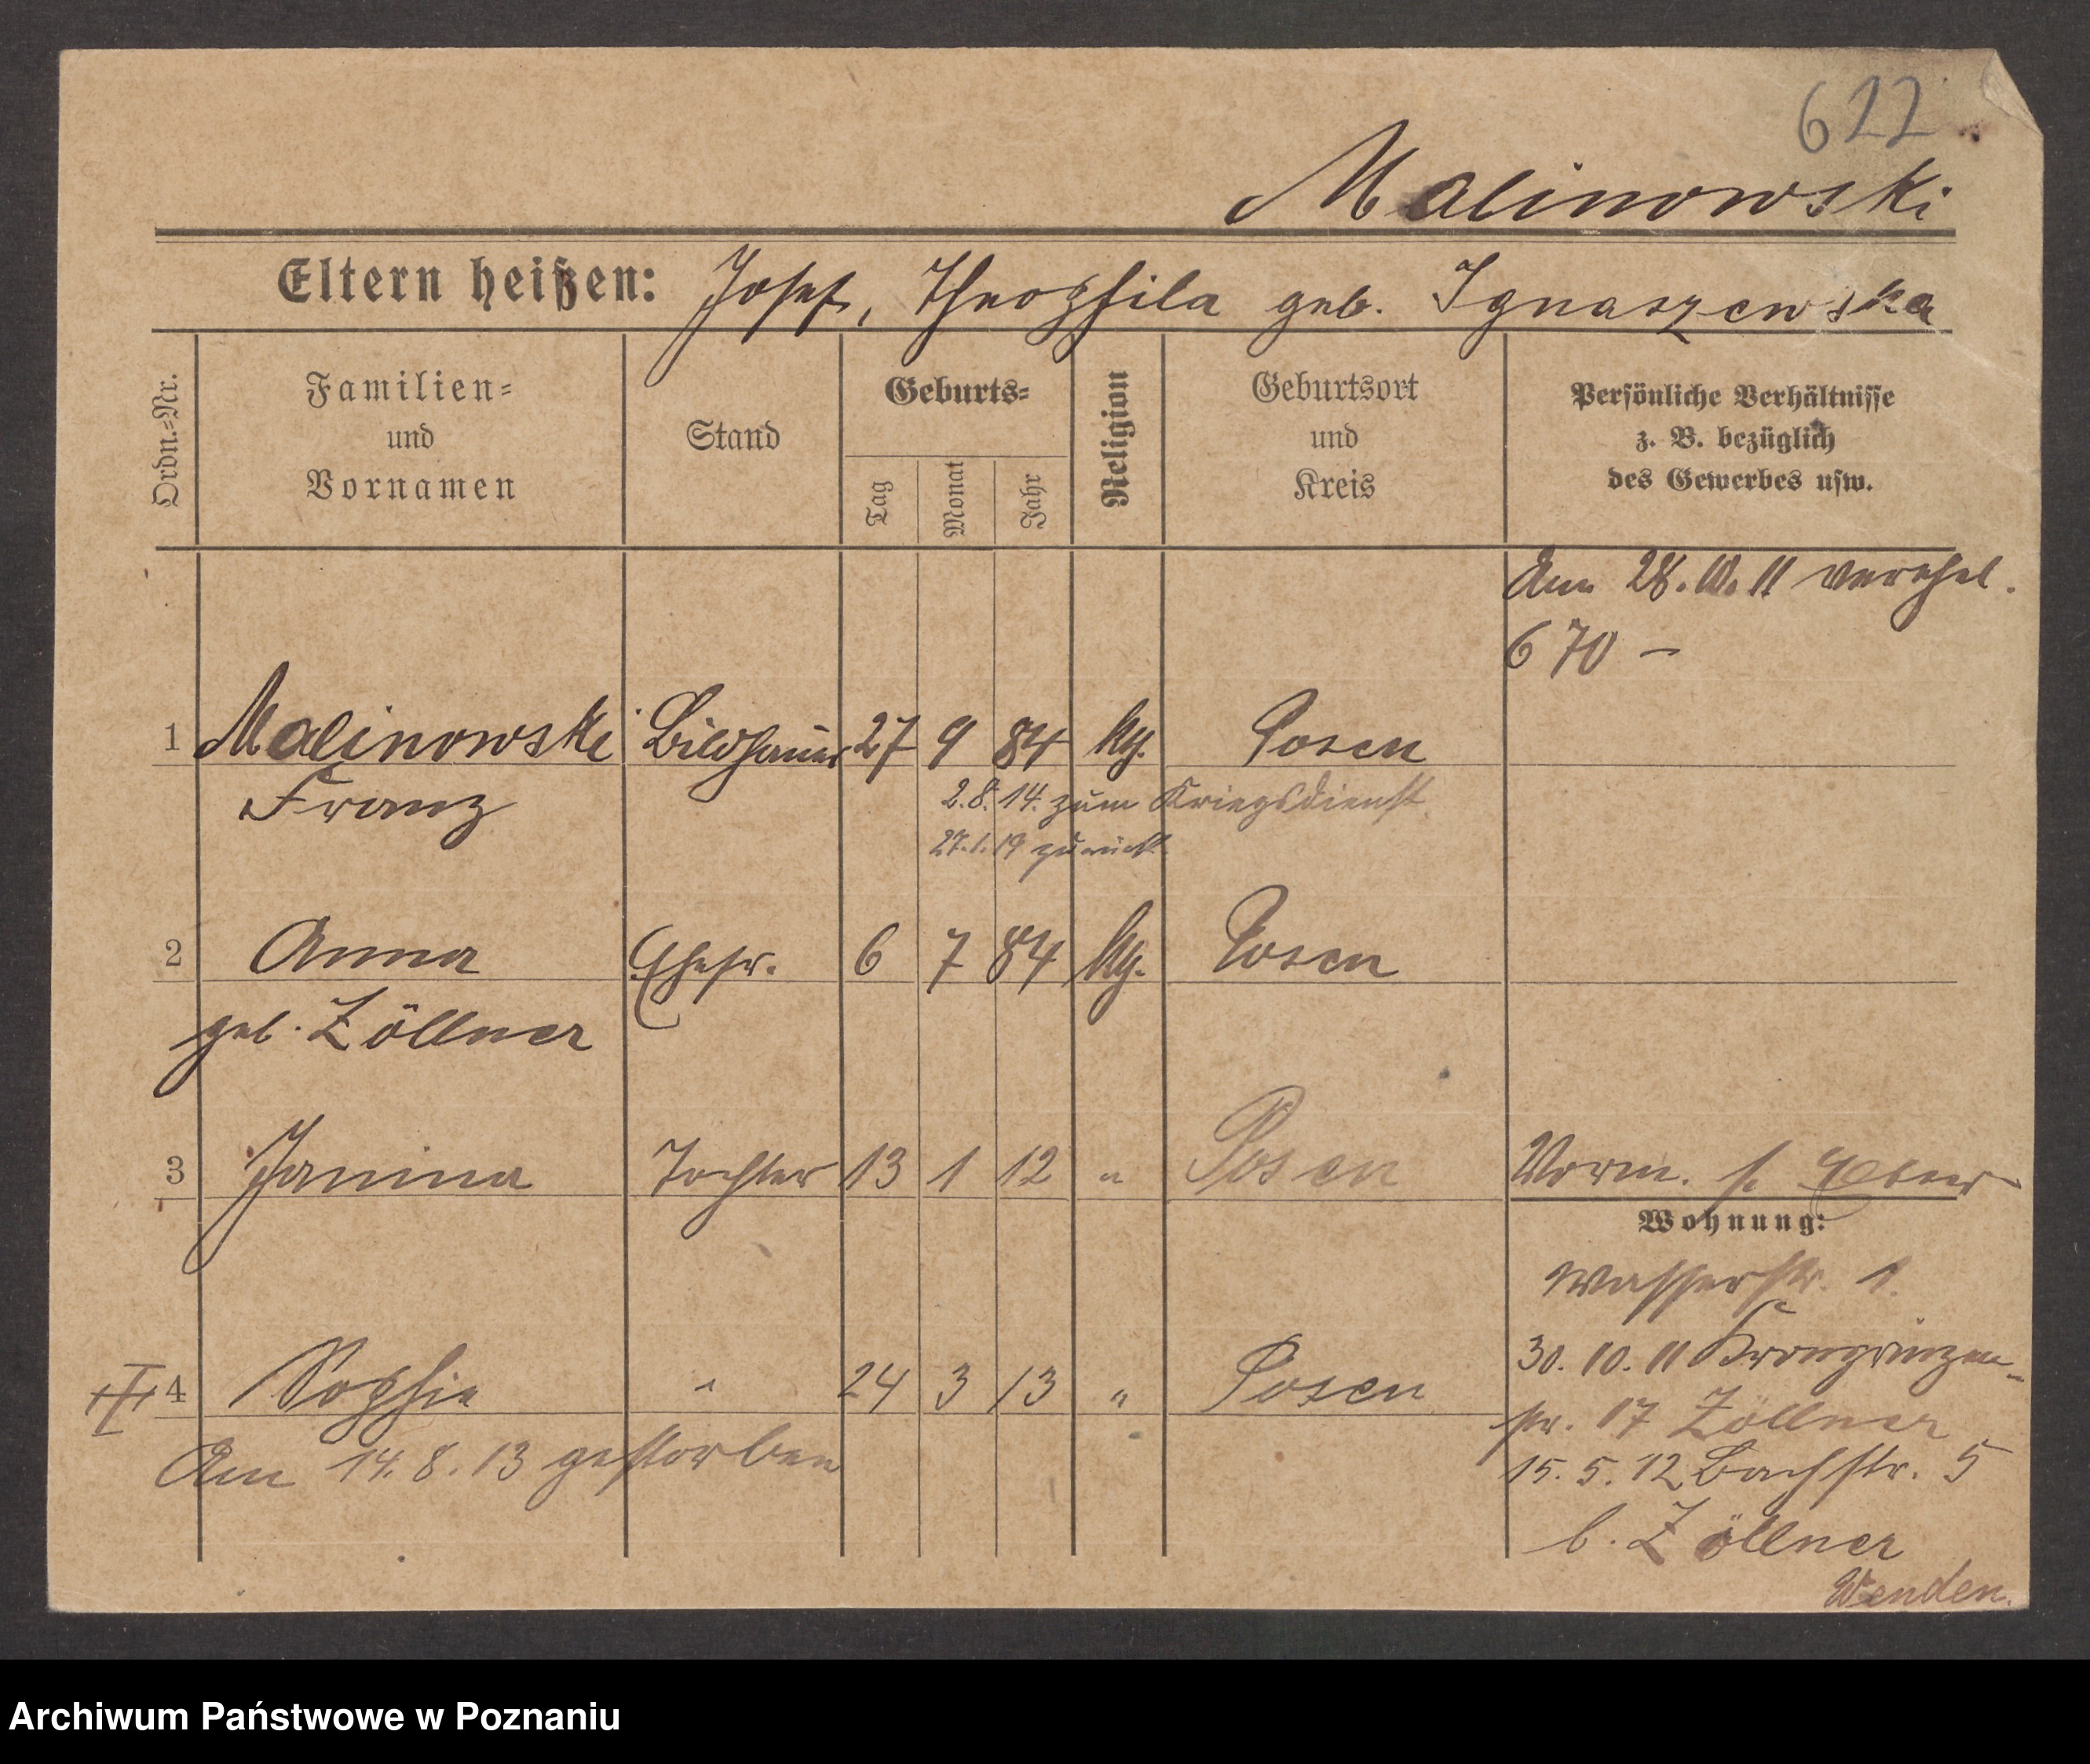 622
Malinowski
Eltern heißen: Josef, Theophila geb. Ignaszewska
Ordn.=Nr.
Familien=
und
Vornamen
Stand
Geburts=
Tag
Monat
Jahr
Religion
Geburtsort
und
Kreis
Persönliche Verhältnisse
z. B. bezüglich
des Gewerbes usw.
Am 28.10.11 verehel.
670 –
1 Malinowski Bildhauer 27 9 84 kg. Posen
Franz
2.8.14. zum Kriegsdienst
27.1.19 zurück
2 Anna Ehefr. 6 7 84 kg. Posen
geb. Zöllner
3 Janina Tochter 13 1 12 " Posen
Vorm. s.
Wohnung:
Wasserstr. 1.
30.10.11 Kronprinzen-
str. 17 Zöllner
4 Sophie " 24 3 13 " Posen
Am 14.8.13 gestorben
15.5.12 Bachstr. 5
b. Zöllner
Wenden.
Archiwum Państwowe w Poznaniu